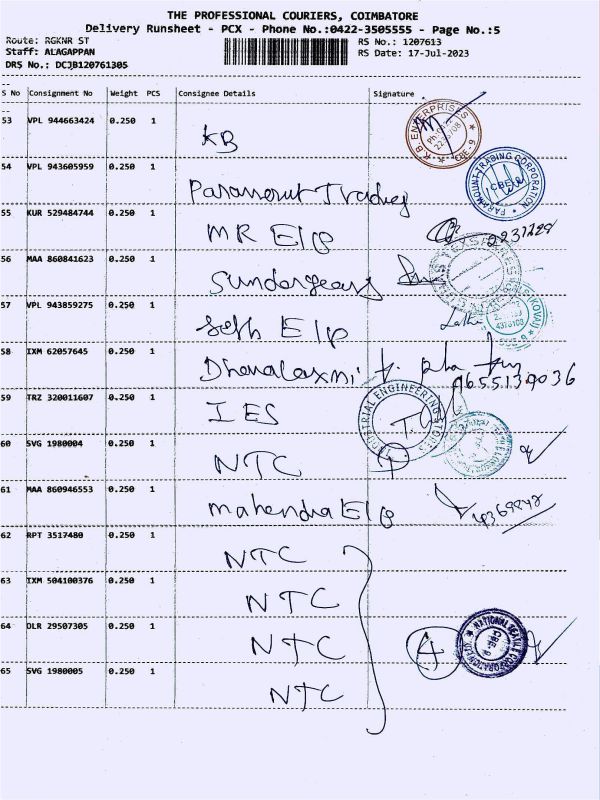 THE PROFESSIONAL COURIERS, COIMBATORE
Delivery Runsheet - PCX - Phone No.:0422-3505555 - Page No.:5
Route: RGKNR ST RS No.: 1207613
Staff: ALAGAPPAN RS Date: 17-Jul-2023
DRS No.: DCJB120761305
S No Consignment No Weight PCS Consignee Details Signature
53 VPL 944663424 0.250 1 KB
K.B ENTERPRISES CBE-9
54 VPL 943605959 0.250 1 Paramount Trading
PARAMOUNT TRADING CORPORATION CBE
55 KUR 529484744 0.250 1 MR E/p 2231228
56 MAA 860841623 0.250 1 Sundargears
57 VPL 943859275 0.250 1 Seth E/p
58 IXM 62057645 0.250 1 Dhanalaxmi
59 TRZ 320011607 0.250 1 IES
INDUSTRIAL ENGINEERING STORES
60 SVG 1980004 0.250 1 NTC 1
61 MAA 860946553 0.250 1 Mahendra E/p
62 RPT 3517480 0.250 1 NTC
63 IXM 504100376 0.250 1 NTC
64 DLR 29507305 0.250 1 NTC 4
NATIONAL TEXTILE CORPORATION CBE-9
65 SVG 1980005 0.250 1 NTC